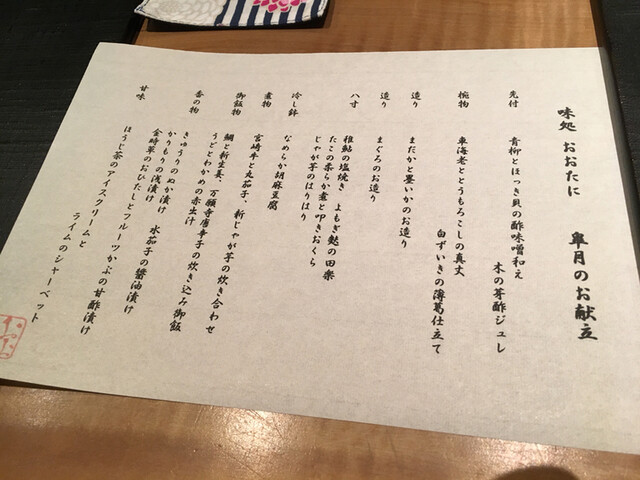 味処 おおたに 皐月のお献立
先付 青柳とほっき貝の酢味噌和え
木の芽酢ジュレ
椀物 車海老ととうもろこしの真丈
白ずいきの薄葛仕立て
造り まだかと墨いかのお造り
造り まぐろのお造り
八寸 稚鮎の塩焼き よもぎ麩の田楽
たこの柔らか煮と叩きおくら
じゃが芋のはりはり
冷し鉢 なめらか胡麻豆腐
煮物 宮崎牛と丸茄子、新じゃが芋の炊き合わせ
御飯物 鯛と新生姜、万願寺唐辛子の炊き込み御飯
うどとわかめの赤出汁
香の物 きゅうりのぬか漬け
かりもりの浅漬け 水茄子の醬油漬け
金時草のおひたしとフルーツかぶの甘酢漬け
甘味 ほうじ茶のアイスクリームと
ライムのシャーベット